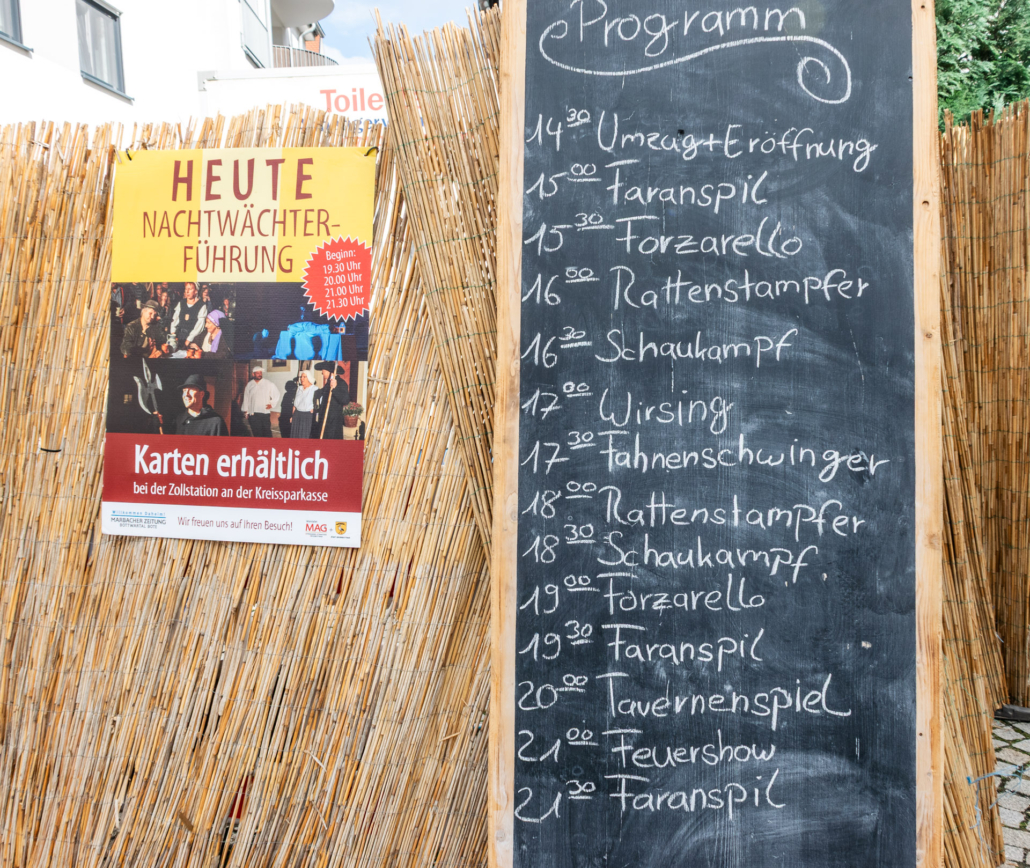 Toile
HEUTE
NACHTWÄCHTER-
FÜHRUNG
Beginn:
19.30 Uhr
20.00 Uhr
21.00 Uhr
21.30 Uhr
Karten erhältlich
bei der Zollstation an der Kreissparkasse
MARBACHER ZEITUNG
Wir freuen uns auf Ihren Besuch!
MAG
Programm
14 30 Umzug + Eröffnung
15 00 Faranspil
15 30 Forzarello
16 00 Rattenstampfer
16 30 Schaukampf
17 00 Wirsing
17 30 Fahnenschwinger
18 00 Rattenstampfer
18 30 Schaukampf
19 00 Forzarello
19 30 Faranspil
20 00 Tavernenspiel
21 00 Feuershow
21 30 Faranspil